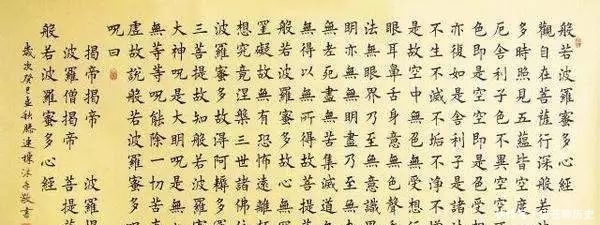 般若波羅蜜多心經
觀自在菩薩行深般若
多時照見五蘊皆空度
厄舍利子色不異空空
色即是空空即是色受
亦復如是舍利子是諸
不生不滅不垢不淨不
是故空中無色無受想
眼耳鼻舌身意無色聲
法無眼界乃至無意識
明亦無無明盡乃至無
無老死盡無苦集滅道
無得以無所得故菩提
般若波羅蜜多故心無
罣礙故無有恐怖遠離
想究竟涅槃三世諸佛
波羅蜜多故得阿耨多
三菩提故知般若波羅
大神呪是大明呪是無
無等等呪能除一切苦
虛故說般若波羅蜜多
呪曰
揭帝揭帝 波羅
波羅僧揭帝 菩提
般若波羅蜜多心經
歲次癸巳孟秋滕連棟沐手敬書